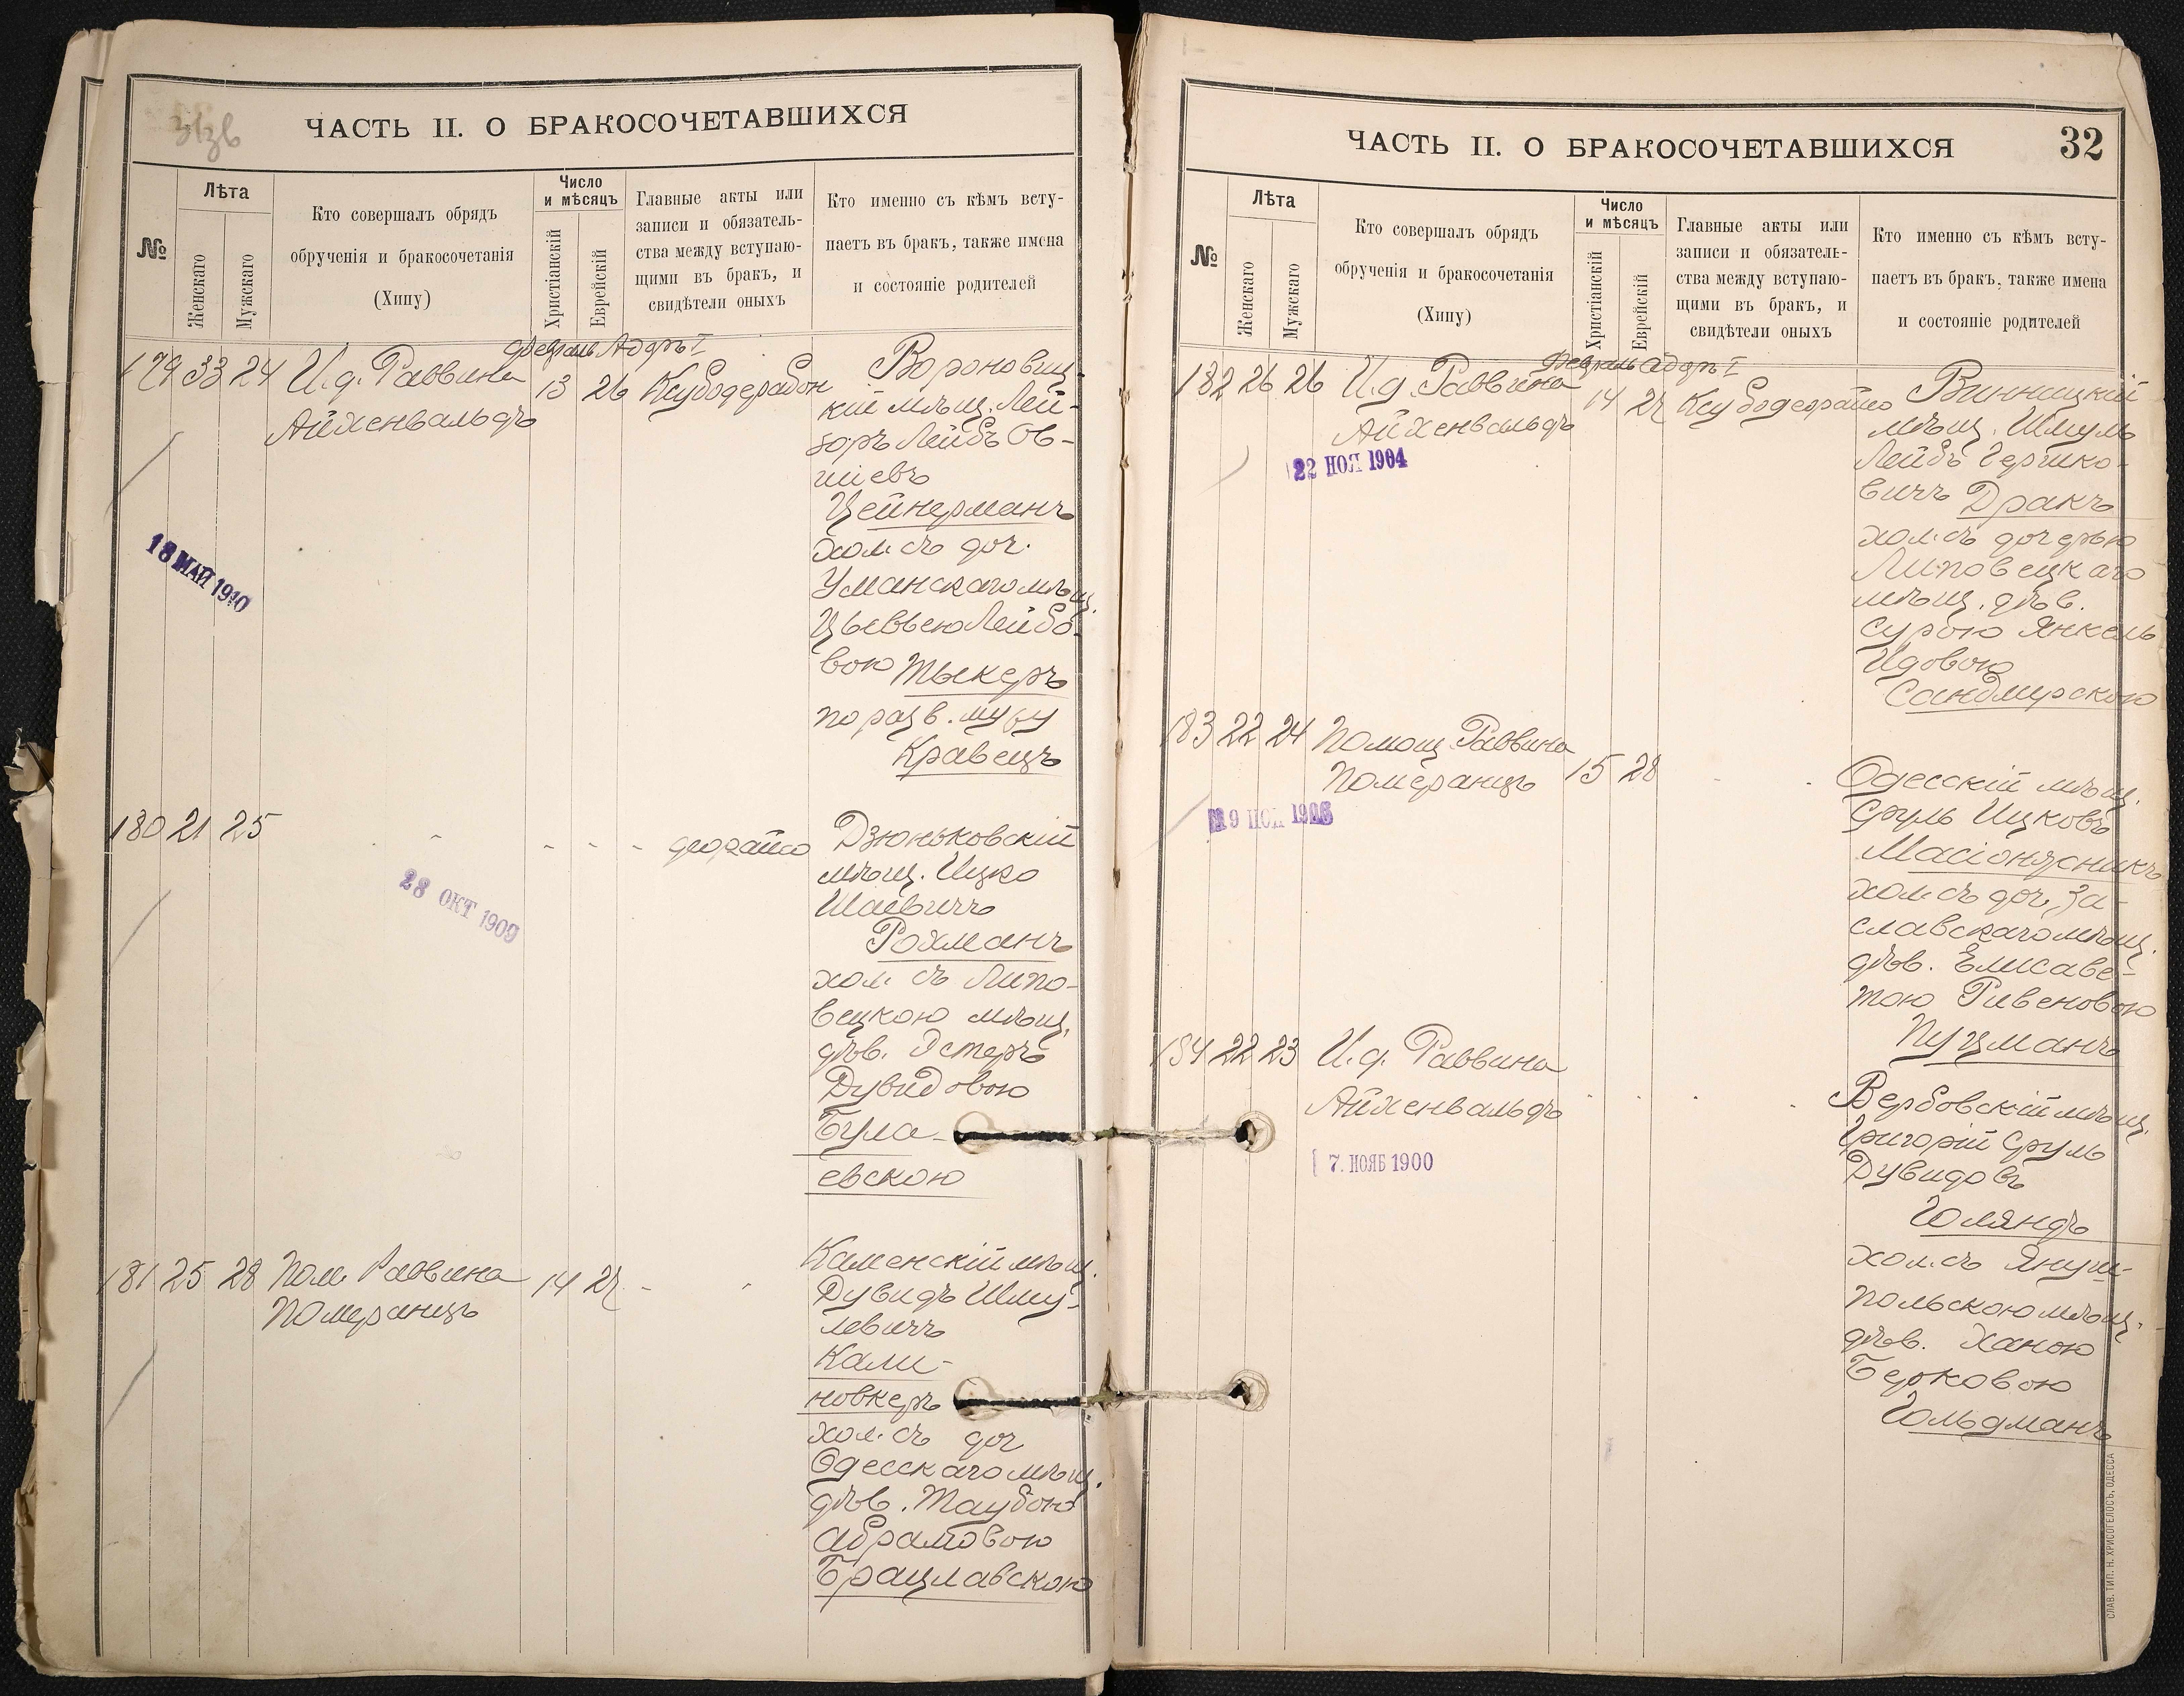 ЧАСТЬ II. О БРАКОСОЧЕТАВШИХСЯ
№
Лѣта
Женскаго
Мужскаго
Кто совершалъ обрядъ
обрученія и бракосочетанія
(Хипу)
Число
и мѣсяцъ
Христіанскій
Еврейскій
Главные акты или
записи и обязатель-
ства между вступаю-
щими въ бракъ, и
свидѣтели оныхъ
Кто именно съ кѣмъ всту-
паетъ въ бракъ, также имена
и состояніе родителей
Февраль Адаръ I
179 33 24 И.д. Раввина 13 26
Айхенвальдъ
Вороновиц-
кій мѣщ. Лей-
зоръ Лейбъ Ов-
шіевъ
Цейнерманъ
хол. съ доч.
Уманскаго мѣщ.
Цывьею Лейбо-
вою Тыкеръ
по разв. мужу
Кравецъ
18 МАЙ 1910
180 21 25 - - - - деорайсо
Дзюньковскій
мѣщ. Ицко
Шаевичъ
Рохманъ
хол. съ Липо-
вецкою мѣщ.
дѣв. Эстеръ
Дувидовою
Була-
евскою
28 ОКТ 1909
181 25 28 Пом. Раввина 14 27 -
Померанцъ
Каменскій мѣщ.
Дувидъ Шму-
левичъ
Кали-
новкеръ
хол. съ доч
Одесскаго мѣщ.
дѣв. Таубою
Абрамовою
Брацлавскою
ЧАСТЬ II. О БРАКОСОЧЕТАВШИХСЯ
32
№
Лѣта
Женскаго
Мужскаго
Кто совершалъ обрядъ
обрученія и бракосочетанія
(Хипу)
Число
и мѣсяцъ
Христіанскій
Еврейскій
Главные акты или
записи и обязатель-
ства между вступаю-
щими въ бракъ, и
свидѣтели оныхъ
Кто именно съ кѣмъ всту-
паетъ въ бракъ, также имена
и состояніе родителей
Февраль Адаръ I
182 26 26 И.д. Раввина 14 27 Ксубодеорайсо
Айхенвальдъ
22 НОЯ 1904
Винницкій
мѣщ. Шмуль
Лейбъ Гершко-
вичъ Дракъ
хол. съ дочерью
Липовецкаго
мѣщ. дѣв.
Сурою Янкель
Идовою
Сандмирскою
183 22 24 Помощ. Раввина 15 28
Померанцъ
Одесскій мѣщ.
Сруль Ицковъ
Масіонжникъ
хол. съ доч. За-
славскаго мѣщ.
дѣв. Елисаве-
тою Ривеновою
Пуцманъ
184 22 23 И.д. Раввина
Айхенвальдъ
7. НОЯБ 1900
Вербовскій мѣщ.
Григорій Сруль
Дувидовъ
Голяндъ
хол. съ Януш-
польскою мѣщ.
дѣв. Ханою
Берковою
Гольдманъ
СЛАВ. ТИП. Н. ХРИСОГЕЛОСЪ, ОДЕССА